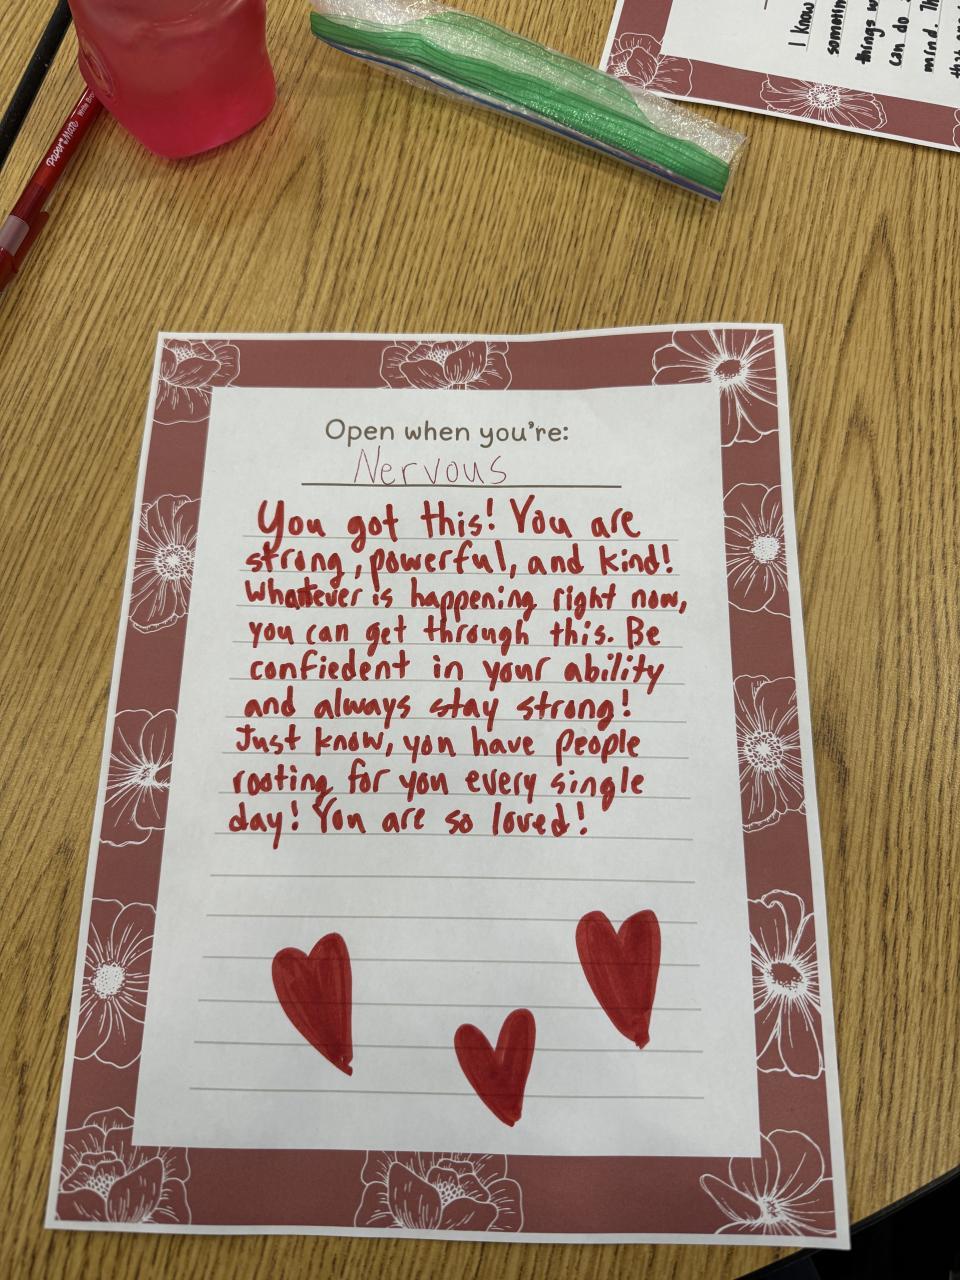 Paper Mate Write Bros
I know
sometin
things w
can do
mind. Th
Open when you're:
Nervous
You got this! You are
strong, powerful, and kind!
Whatever is happening right now,
you can get through this. Be
confiedent in your ability
and always stay strong!
Just know, you have people
rooting for you every single
day! You are so loved!